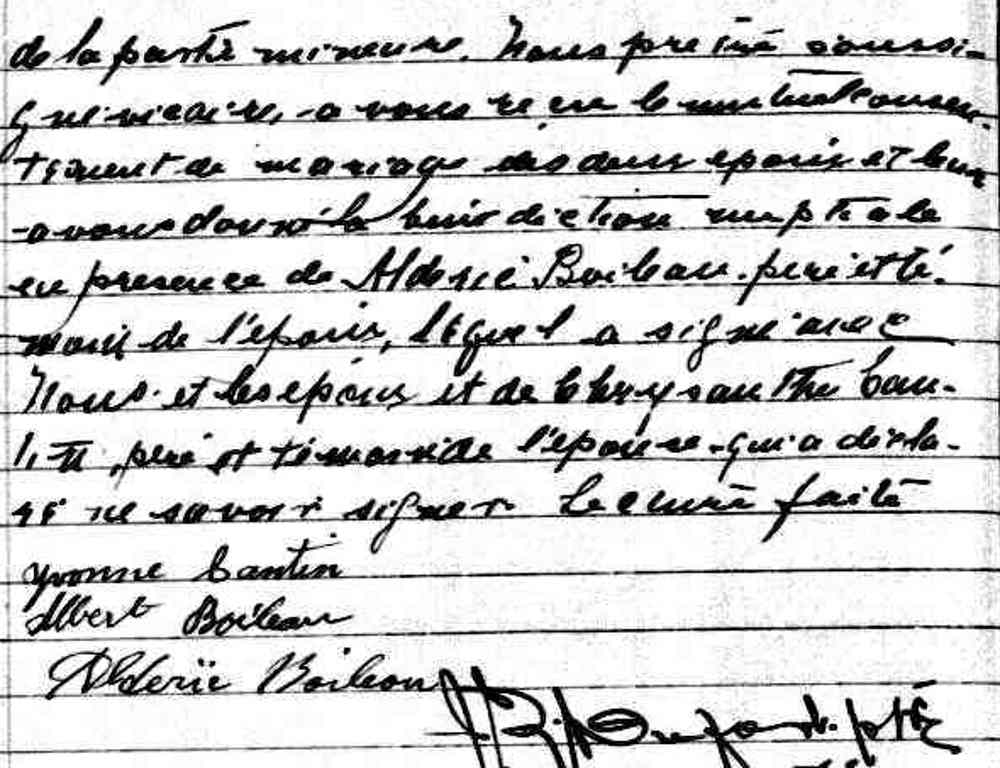 de la partie mineure. Nous prêtre soussi-
gné vicaire, avons reçu le mutuel consen-
tement de mariage des deux epoux et leur
avons donné la bénédiction nuptiale
en presence de Alderic Boileau père et té-
moin de l'époux, lequel a signé avec
Nous et les epoux et de Chrysanthe Can-
tin, père et témoin de l'épouse qui a décla-
ré ne savoir signer. Lecture faite
Yvonne Cantin
Albert Boileau
Aldéric Boileau
ptre